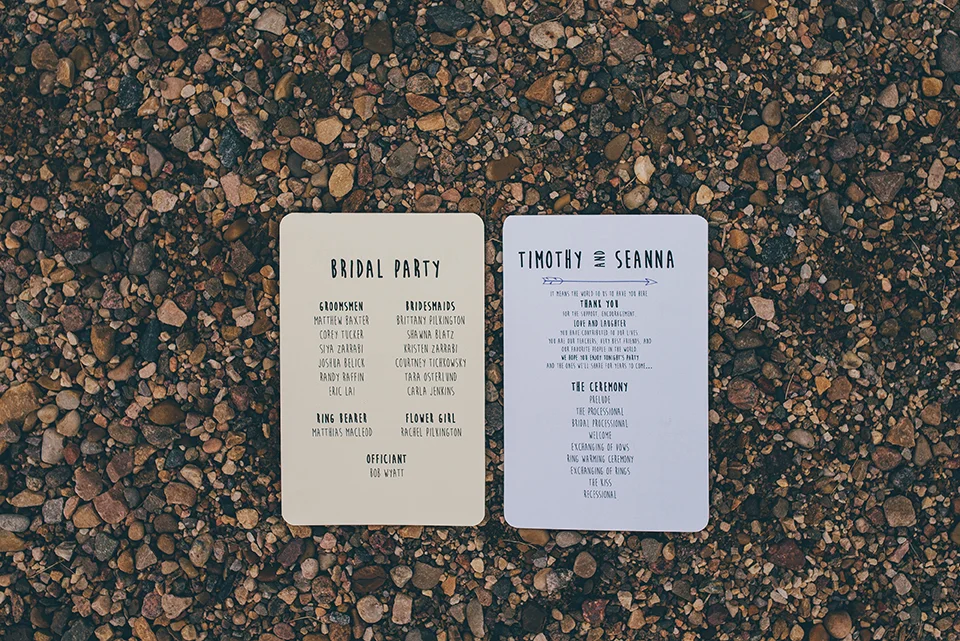 BRIDAL PARTY
GROOMSMEN
MATTHEW BAXTER
COREY TUCKER
SIYA ZARRABI
JOSHUA BELICK
RANDY RAFFIN
ERIC LAI
BRIDESMAIDS
BRITTANY PILKINGTON
SHAWNA BLATZ
KRISTEN ZARRABI
COURTNEY TICHKOWSKY
TARA OSTERLUND
CARLA JENKINS
RING BEARER
MATTHIAS MACLEOD
FLOWER GIRL
RACHEL PILKINGTON
OFFICIANT
BOB WYATT
TIMOTHY AND SEANNA
IT MEANS THE WORLD TO US TO HAVE YOU HERE
THANK YOU
FOR THE SUPPORT, ENCOURAGEMENT,
LOVE AND LAUGHTER
YOU HAVE CONTRIBUTED TO OUR LIVES.
YOU ARE OUR TEACHERS, VERY BEST FRIENDS, AND
OUR FAVOURITE PEOPLE IN THE WORLD.
WE HOPE YOU ENJOY TONIGHT'S PARTY
AND THE ONES WE'LL SHARE FOR YEARS TO COME....
THE CEREMONY
PRELUDE
THE PROCESSIONAL
BRIDAL PROCESSIONAL
WELCOME
EXCHANGING OF VOWS
RING WARMING CEREMONY
EXCHANGING OF RINGS
THE KISS
RECESSIONAL